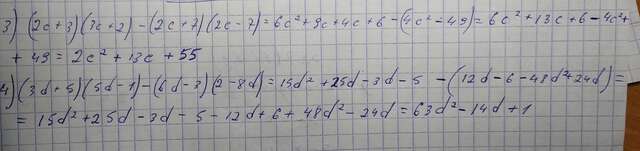 3) (2c+3)(3c+2)-(2c+7)(2c-7)=6c²+9c+4c+6-(4c²-49)=6c²+13c+6-4c²+
+49=2c²+13c+55
4)(3d+5)(5d-1)-(6d-3)(2-8d)=15d²+25d-3d-5-(12d-6-48d²+24d)=
=15d²+25d-3d-5-12d+6+48d²-24d=63d²-14d+1